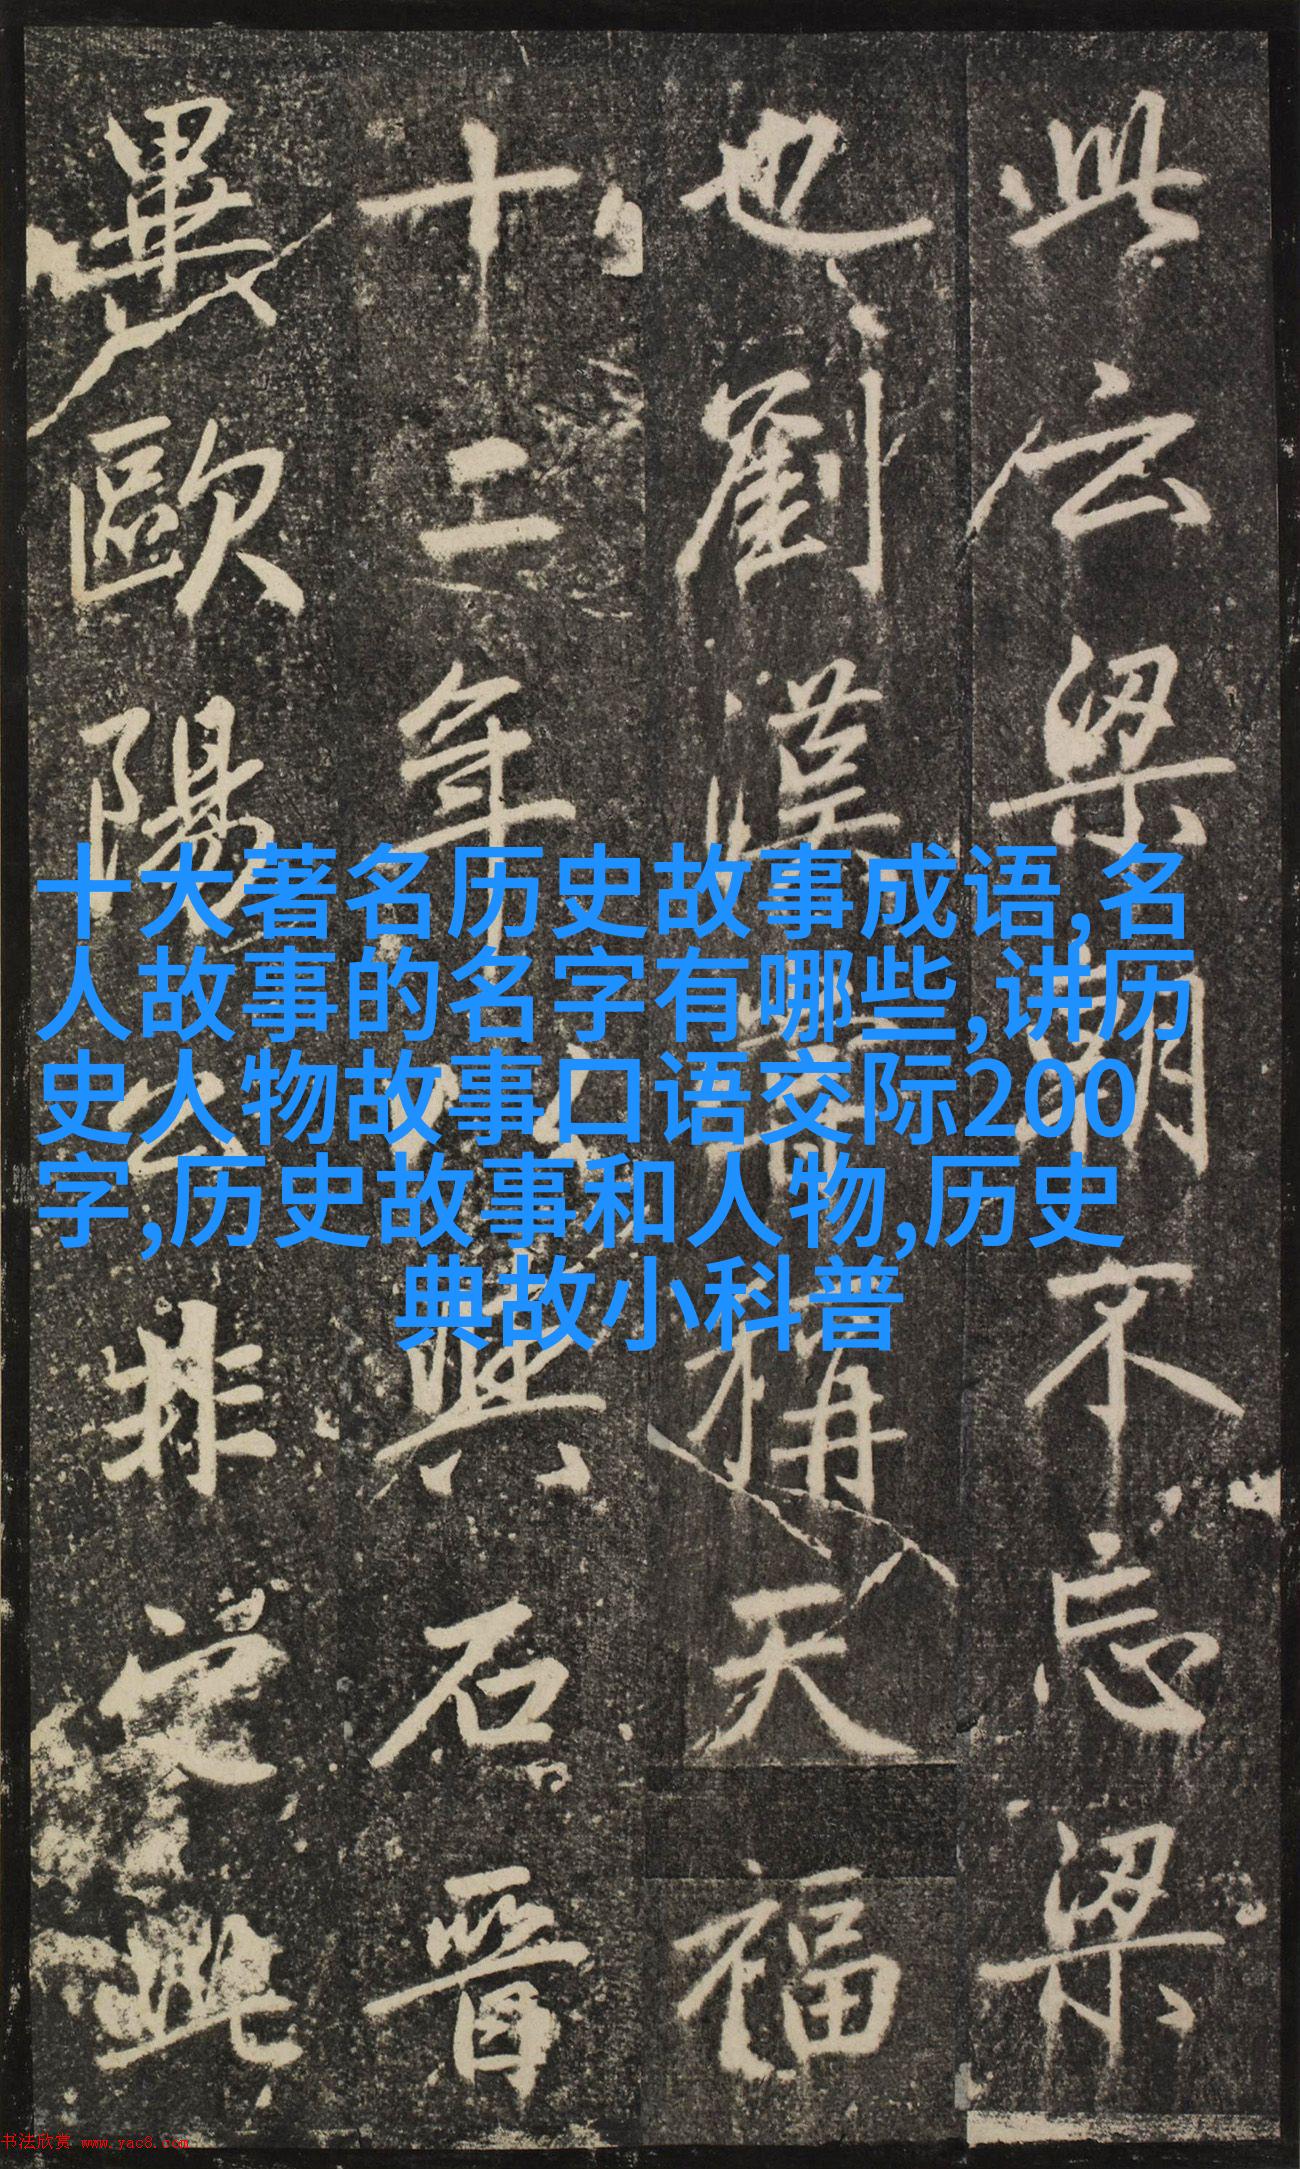 此云梁朝不忘梁
也劉漢稱天福
十二年與石晉
畢歐陽公非此
十大著名历史故事成语,名
人故事的名字有哪些,讲历
史人物故事口语交际200
字,历史故事和人物,历史
典故小科普
书法欣赏 www.yac8.com